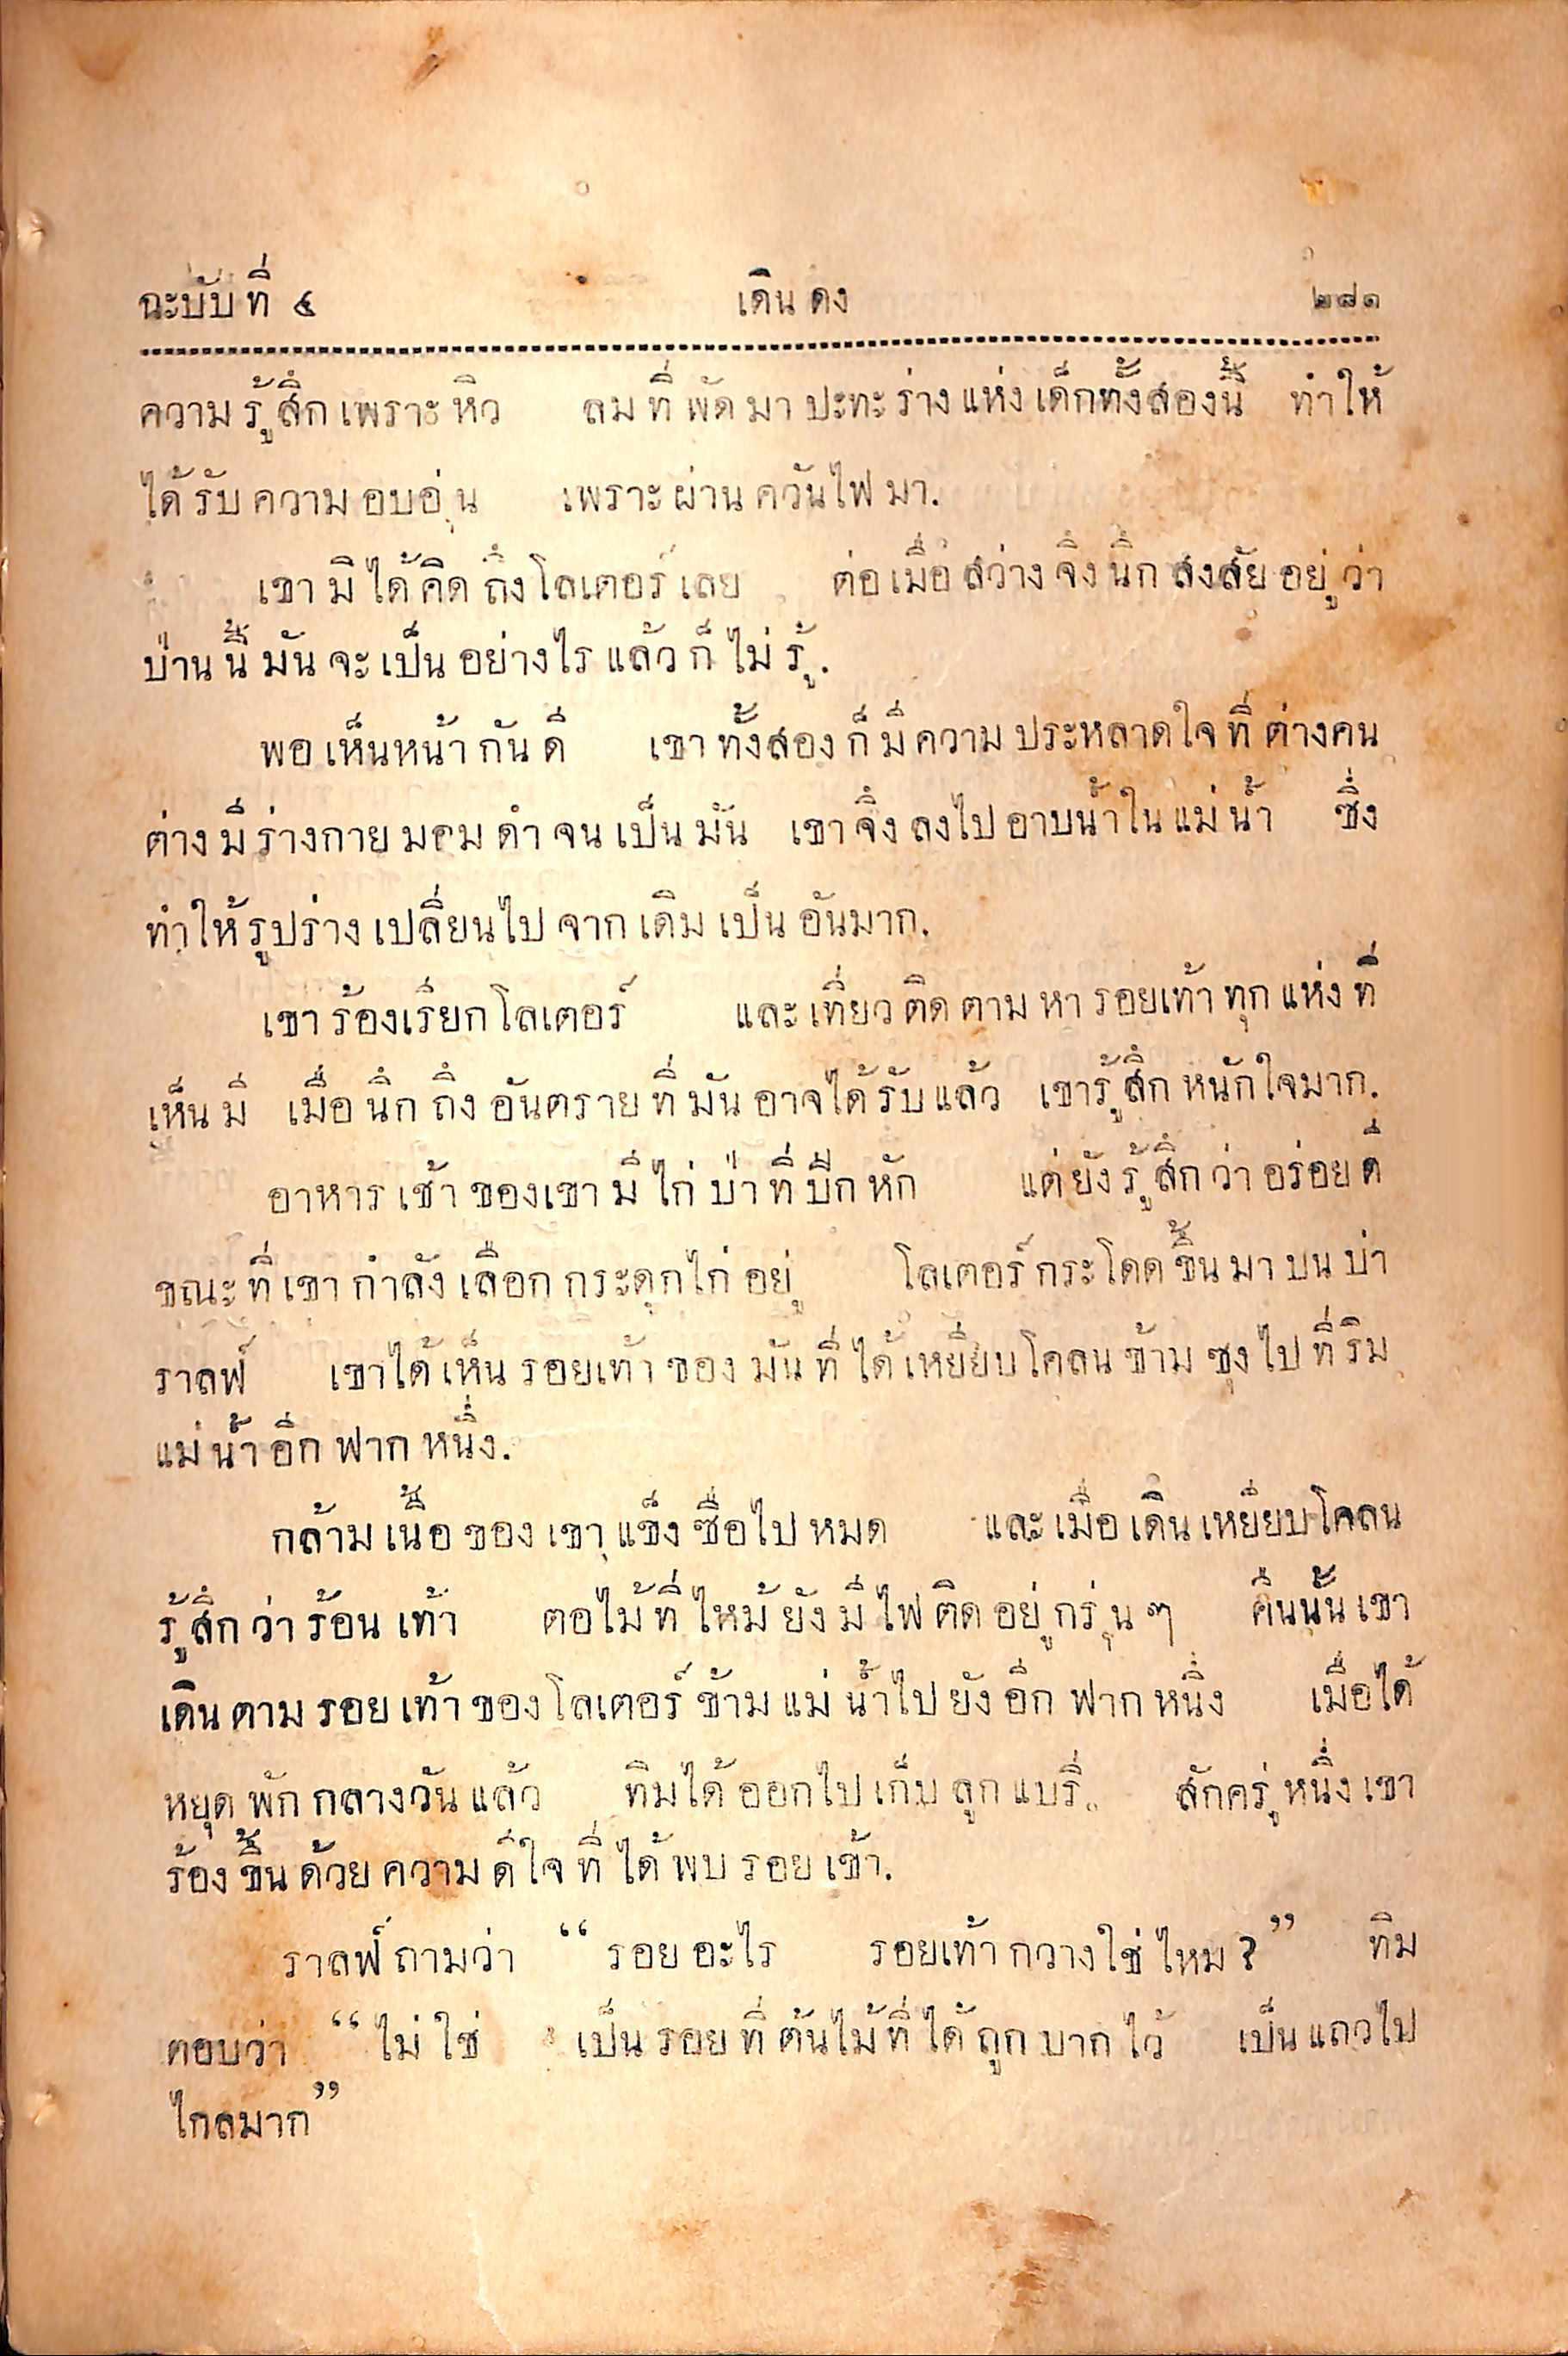 ฉะบับที่ ๔ เดินดง ๒๘๑
ความรู้สึกเพราะหิว ลมที่พัดมาปะทะร่างแห่งเด็กทั้งสองนี้ ทำให้
ได้รับความอบอุ่น เพราะผ่านควันไฟมา.
เขามิได้คิดถึงโลเตอร์เลย ต่อเมื่อสว่างจึงนึกสงสัยอยู่ว่า
ป่านนี้มันจะเป็นอย่างไรแล้วก็ไม่รู้.
พอเห็นหน้ากันดี เขาทั้งสองก็มีความประหลาดใจที่ต่างคน
ต่างมีร่างกายมอมดำจนเป็นมัน เขาจึงลงไปอาบน้ำในแม่น้ำ ซึ่ง
ทำให้รูปร่างเปลี่ยนไปจากเดิมเป็นอันมาก.
เขาร้องเรียกโลเตอร์ และเที่ยวติดตามหารอยเท้าทุกแห่งที่
เห็นมี เมื่อนึกถึงอันตรายที่มันอาจได้รับแล้ว เขารู้สึกหนักใจมาก.
อาหารเช้าของเขามีไก่ป่าที่ปีกหัก แต่ยังรู้สึกว่าอร่อยดี
ขณะที่เขากำลังเลือกกระดุกไก่อยู่ โลเตอร์กระโดดขึ้นมาบนบ่า
ราลฟ์ เขาได้เห็นรอยเท้าของมันที่ได้เหยียบโคลนข้ามซุงไปที่ริม
แม่น้ำอีกฟากหนึ่ง.
กล้ามเนื้อของเขาแข็งซื่อไปหมด และเมื่อเดินเหยียบโคลน
รู้สึกว่าร้อนเท้า ตอไม้ที่ไหม้ยังมีไฟติดอยู่กรุ่นๆ คืนนั้นเขา
เดินตามรอยเท้าของโลเตอร์ข้ามแม่น้ำไปยังอีกฟากหนึ่ง เมื่อได้
หยุดพักกลางวันแล้ว ทิมได้ออกไปเก็บลูกแบรี่ สักครู่หนึ่งเขา
ร้องขึ้นด้วยความดีใจที่ได้พบรอยเข้า.
ราลฟ์ถามว่า “รอยอะไร รอยเท้ากวางใช่ไหม?” ทิม
ตอบว่า “ไม่ใช่ เป็นรอยที่ต้นไม้ที่ได้ถูกบากไว้ เป็นแถวไป
ไกลมาก”